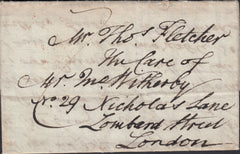 Mr. Thos. Fletcher
the Care of
Mr Jno. Witherby
No. 29 Nicholas Lane
Lombard Street
London